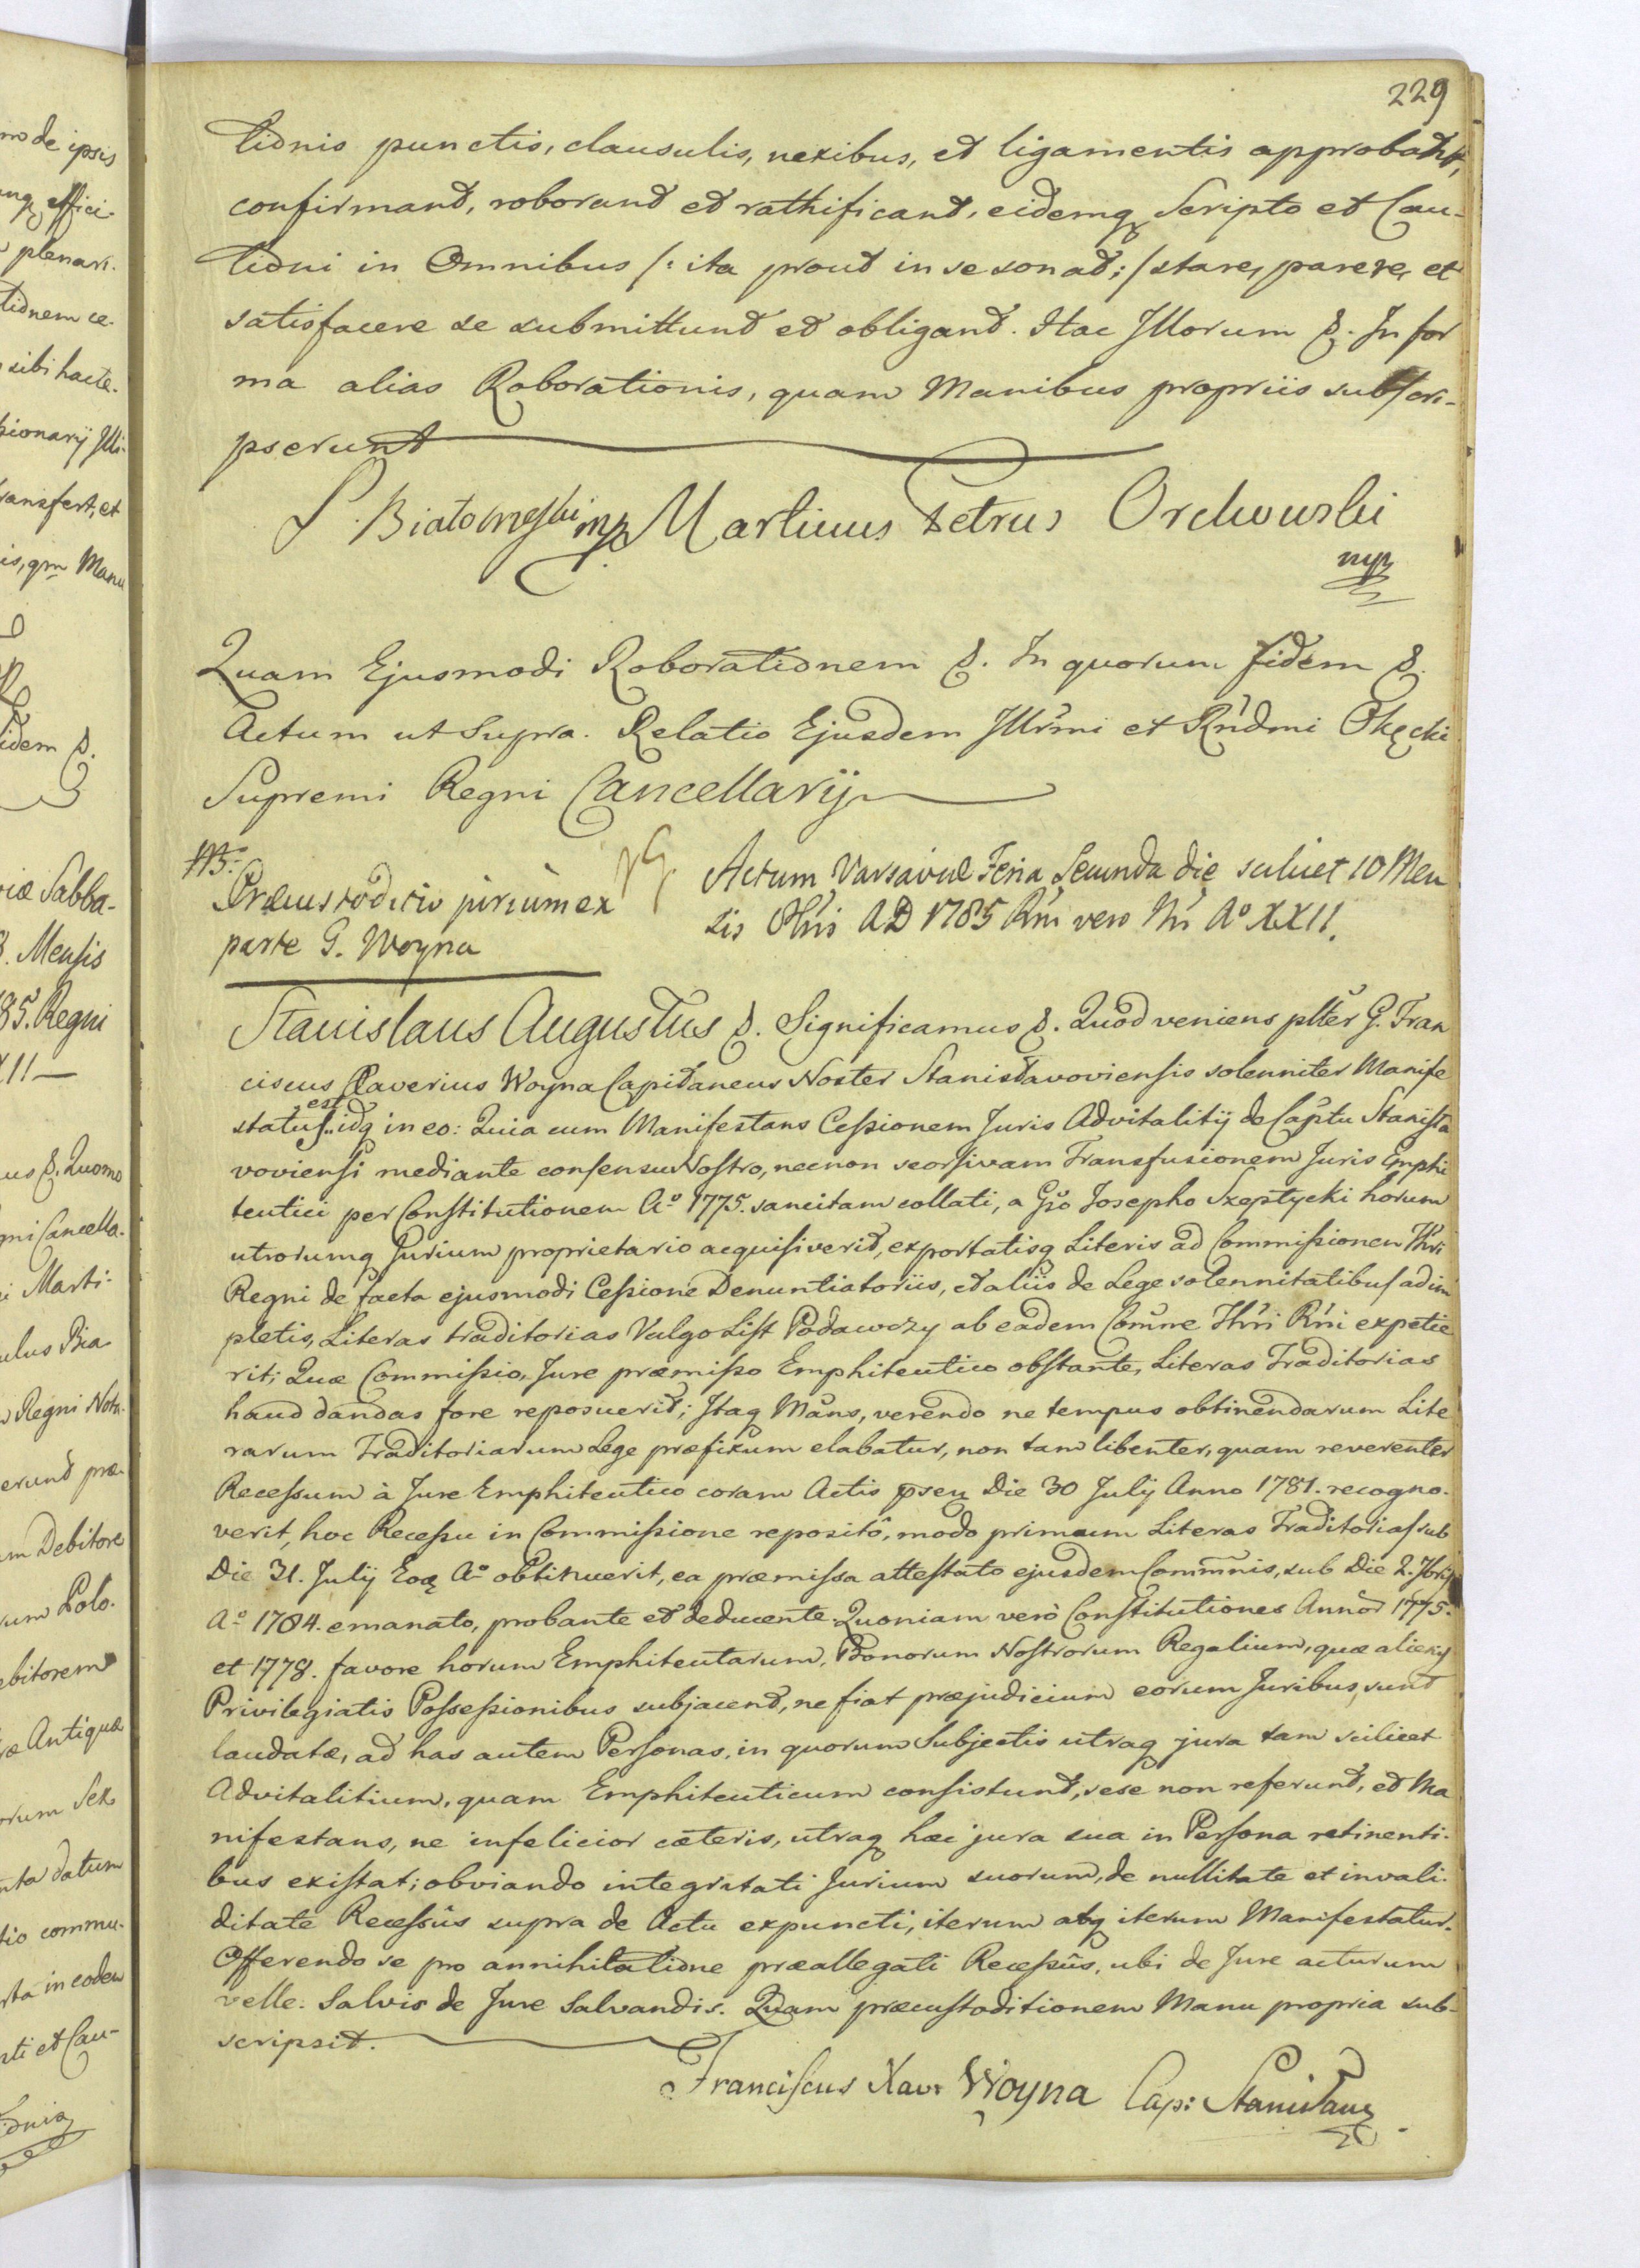 229
tionis punctis, clausulis, nexibus, et ligamentis approbant,
confirmant, roborant et rathificant, eidemq Scripto et Cau-
tioni in Omnibus /: ita prout in se sonat :/ stare, parere, et
satisfacere se submittunt et obligant. Hac Illorum &. In for
ma alias Roborationis, quam Manibus propriis subscri-
pserunt
P. Białobrzeski mp Martinus Petrus Orchowski
mp
Quam Ejusmodi Roborationem &. In quorum fidem &.
Actum ut Supra. Relatio Ejusdem Illrmi et Rndmi Okęcki
Supremi Regni Cancellarij
Præcustoditio jurium ex
parte G. Woyna
Actum Varsaviæ Feria Secunda die scilicet 10 Men
sis Obris AD 1785 Rni vero Nri Aº XXII.
Stanislaus Augustus &. Significamus &. Quod veniens plter G. Fran
ciscus Xaverius Woyna Capitaneus Noster Stanisłavoviensis solenniter Manife
status est idq in eo: Quia cum Manifestans Cessionem Juris Advitalitij de Captu Stanisła
voviensi mediante consensu Nostro, necnon seorsivam Transfusionem Juris Emphi
teutici per Constitutionem Aº 1775. sancitam collati, a Gso Josepho Szeptycki horum
utrorumq Jurium proprietario acquisiverit, exportatisq Literis ad Commissionem Thri
Regni de facta ejusmodi Cessione Denuntiatoriis, et aliis de Lege solennitatibus adim
pletis, Literas traditorias Vulgo List Podawczy ab eadem Comne Thri Rni expetie
rit; Quæ Commissio, Jure præmisso Emphiteutico obstante, Literas Traditorias
haud dandas fore reposuerit; Itaq Mans, verendo ne tempus obtinendarum Lite
rarum Traditoriarum Lege præfixum elabatur, non tam libenter, quam reverenter
Recessum à Jure Emphiteutico coram Actis psen Die 30 July Anno 1781. recogno-
verit, hoc Recessu in Commissione repositô, modo primum Literas Traditorias sub
Die 31. July Eoq Aº obtinuerit, ea præmissa attestato ejusdem Commnis, sub Die 2. 7bris
Aº 1784. emanato, probante et deducente. Quoniam verò Constitutiones Annor 1775.
et 1778. favore horum Emphiteutarum, Bonorum Nostrorum Regalium, quæ alienis
Privilegiatis Possessionibus subjacent, ne fiat præjudicium eorum Juribus, sunt
laudatæ, ad has autem Personas, in quorum Subjectis utraq jura tam scilicet
Advitalitium, quam Emphiteuticum consistunt, sese non referunt, et Ma
nifestans, ne infelicior cæteris, utraq hæc jura sua in Persona retinenti-
bus existat; obviando integritati Jurium suorum, de nullitate et invali-
ditate Recessûs supra de Actu expuncti, iterum atq iterum Manifestatur.
Offerendo se pro annihilatione præallegati Recessûs, ubi de Jure acturum
velle. Salvis de Jure Salvandis. Quam præcustoditionem Manu propria sub-
scripsit.
Franciscus Xav: Woyna Cap: Stanisław